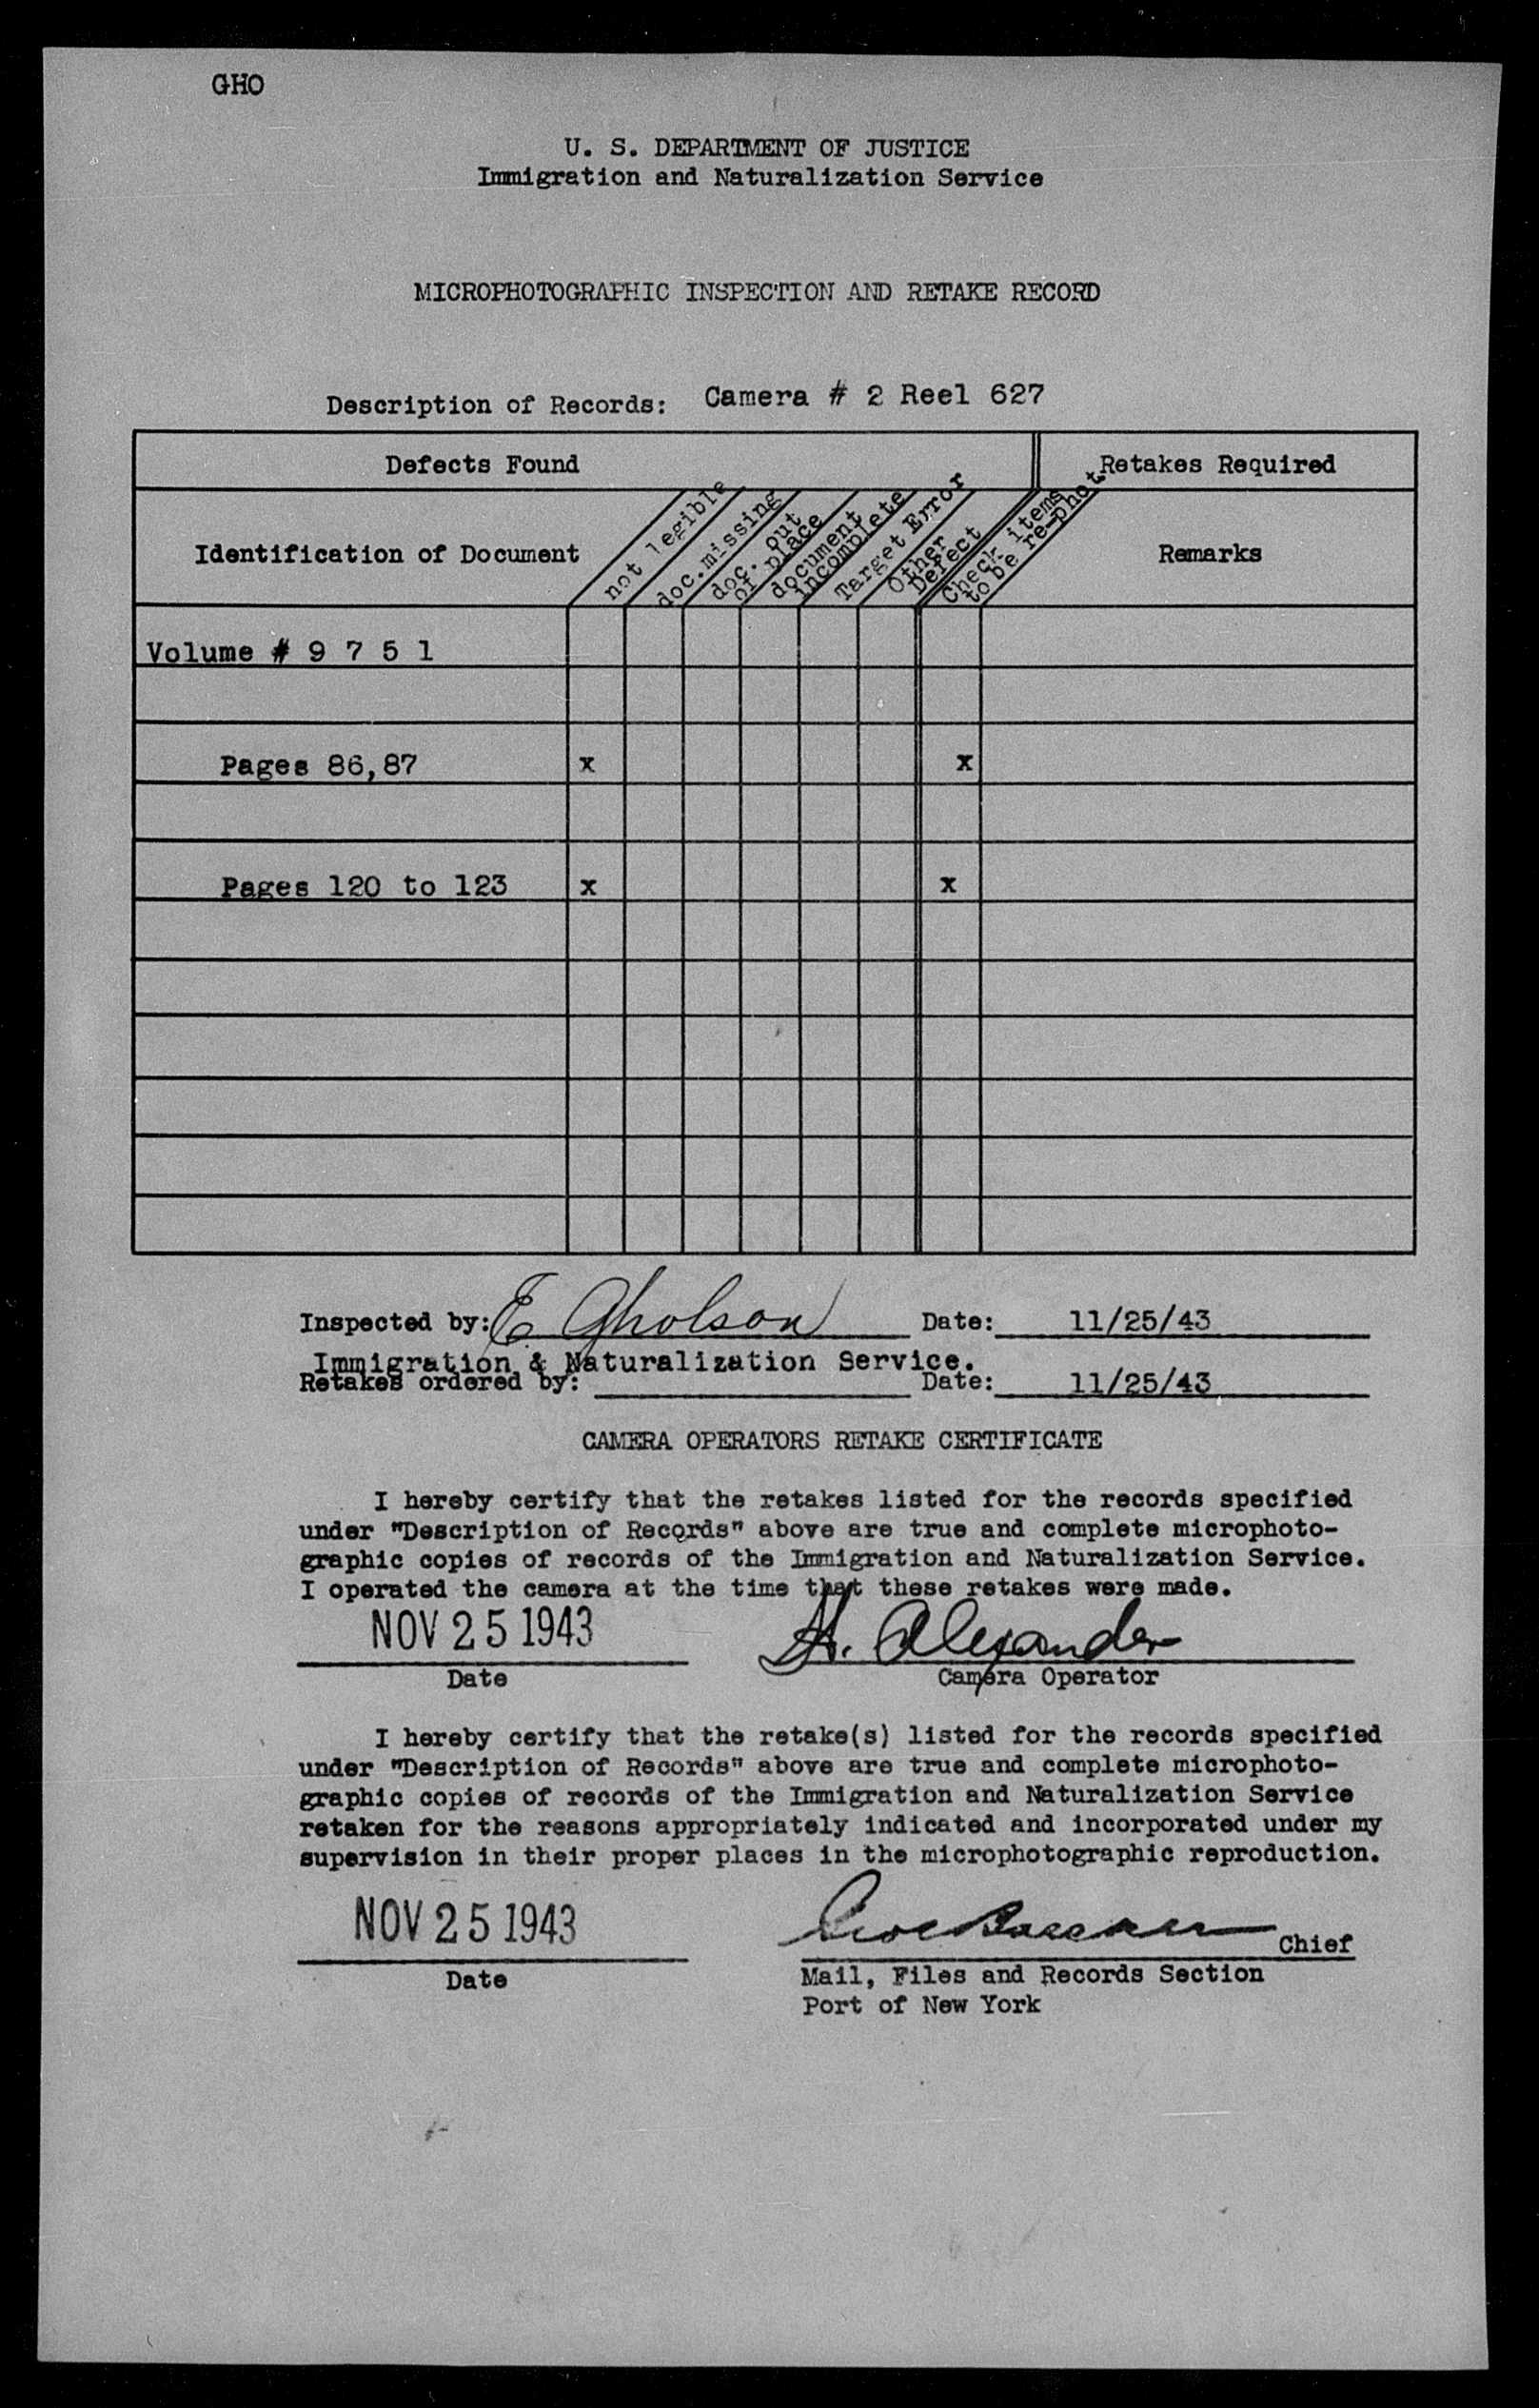 GHO
U. S. DEPARTMENT OF JUSTICE
Immigration and Naturalization Service
MICROPHOTOGRAPHIC INSPECTION AND RETAKE RECORD
Description of Records: Camera # 2 Reel 627
Defects Found
Retakes Required
Identification of Document
not legible
doc. missing
doc. out of place
document incomplete
Target Error
Other Defect
Check items to be re-phot.
Remarks
Volume # 9 7 5 1
Pages 86,87 x x
Pages 120 to 123 x x
Inspected by: E Gholson Date: 11/25/43
Immigration & Naturalization Service.
Retakes ordered by: Date: 11/25/43
CAMERA OPERATORS RETAKE CERTIFICATE
I hereby certify that the retakes listed for the records specified
under "Description of Records" above are true and complete microphoto-
graphic copies of records of the Immigration and Naturalization Service.
I operated the camera at the time that these retakes were made.
NOV 25 1943 H. Alexander
Date Camera Operator
I hereby certify that the retake(s) listed for the records specified
under "Description of Records" above are true and complete microphoto-
graphic copies of records of the Immigration and Naturalization Service
retaken for the reasons appropriately indicated and incorporated under my
supervision in their proper places in the microphotographic reproduction.
NOV 25 1943 Chief
Date Mail, Files and Records Section
Port of New York